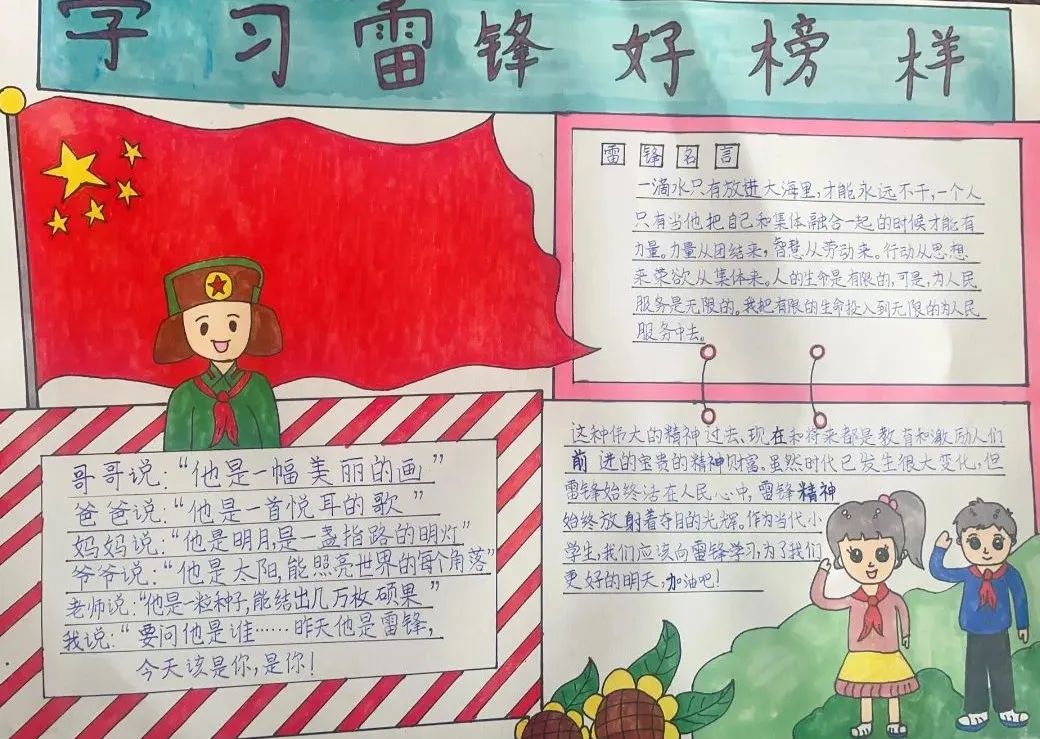 学习雷锋好榜样
雷锋名言
一滴水只有放进大海里,才能永远不干,一个人
只有当他把自己和集体融合一起的时候才能有
力量。力量从团结来,智慧从劳动来。行动从思想
来荣欲从集体来。人的生命是有限的,可是,为人民
服务是无限的。我把有限的生命投入到无限的为人民
服务中去。
哥哥说:“他是一幅美丽的画”
爸爸说:“他是一首悦耳的歌”
妈妈说:“他是明月,是一盏指路的明灯”
爷爷说:“他是太阳,能照亮世界的每个角落”
老师说:“他是一粒种子,能结出几万枚硕果”
我说:“要问他是谁……昨天他是雷锋,
今天该是你,是你!
这种伟大的精神过去、现在和将来都是教育和激励人们
前进的宝贵的精神财富。虽然时代已发生很大变化,但
雷锋始终活在人民心中,雷锋精神
始终放射着夺目的光辉。作为当代小
学生,我们应该向雷锋学习,为了我们
更好的明天,加油吧!